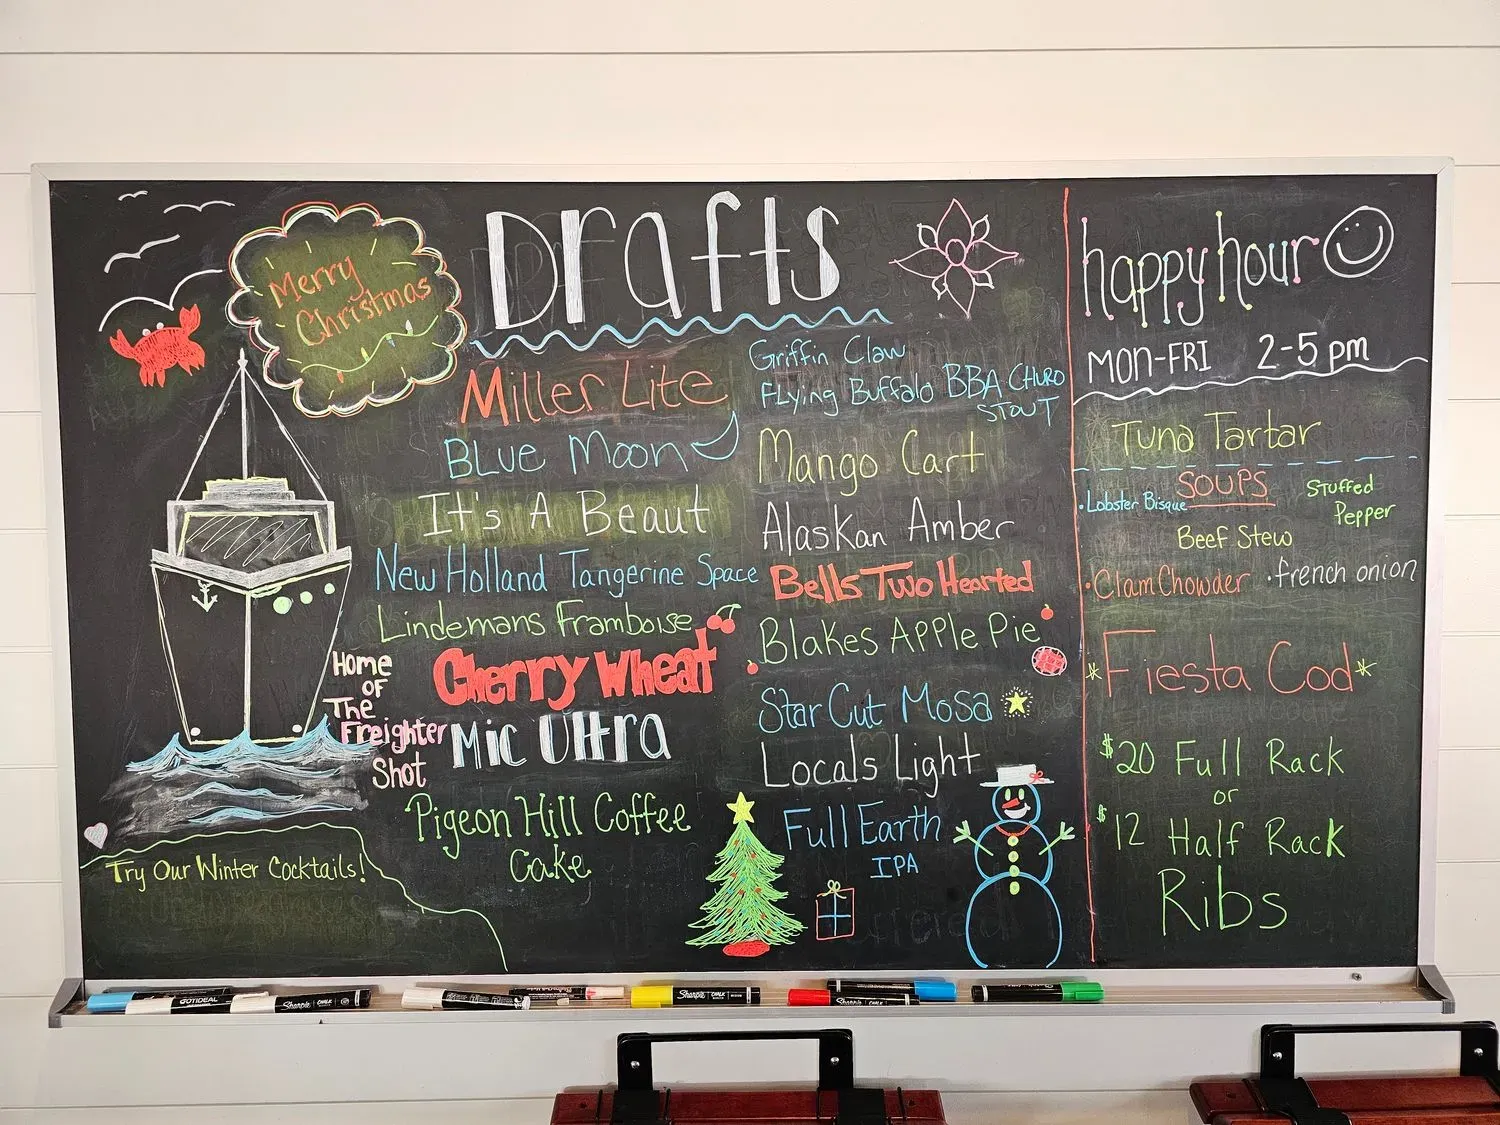 Merry
Christmas
Drafts
Miller Lite
Blue Moon
It's A Beaut
New Holland Tangerine Space
Lindemans Framboise
Cherry Wheat
Mic Ultra
Pigeon Hill Coffee
Cake
Griffin Claw
Flying Buffalo BBA Churo
Stout
Mango Cart
Alaskan Amber
Bells Two Hearted
Blakes Apple Pie
Star Cut Mosa
Locals Light
Full Earth
IPA
Home
of
The
Freighter
Shot
Try Our Winter Cocktails!
happy hour
MON-FRI 2-5 pm
Tuna Tartar
SOUPS
• Lobster Bisque
Stuffed
Pepper
Beef Stew
• Clam Chowder
• french onion
*Fiesta Cod*
$20 Full Rack
or
$12 Half Rack
Ribs
GOTIDEAL
Sharpie CHALK
Sharpie CHALK